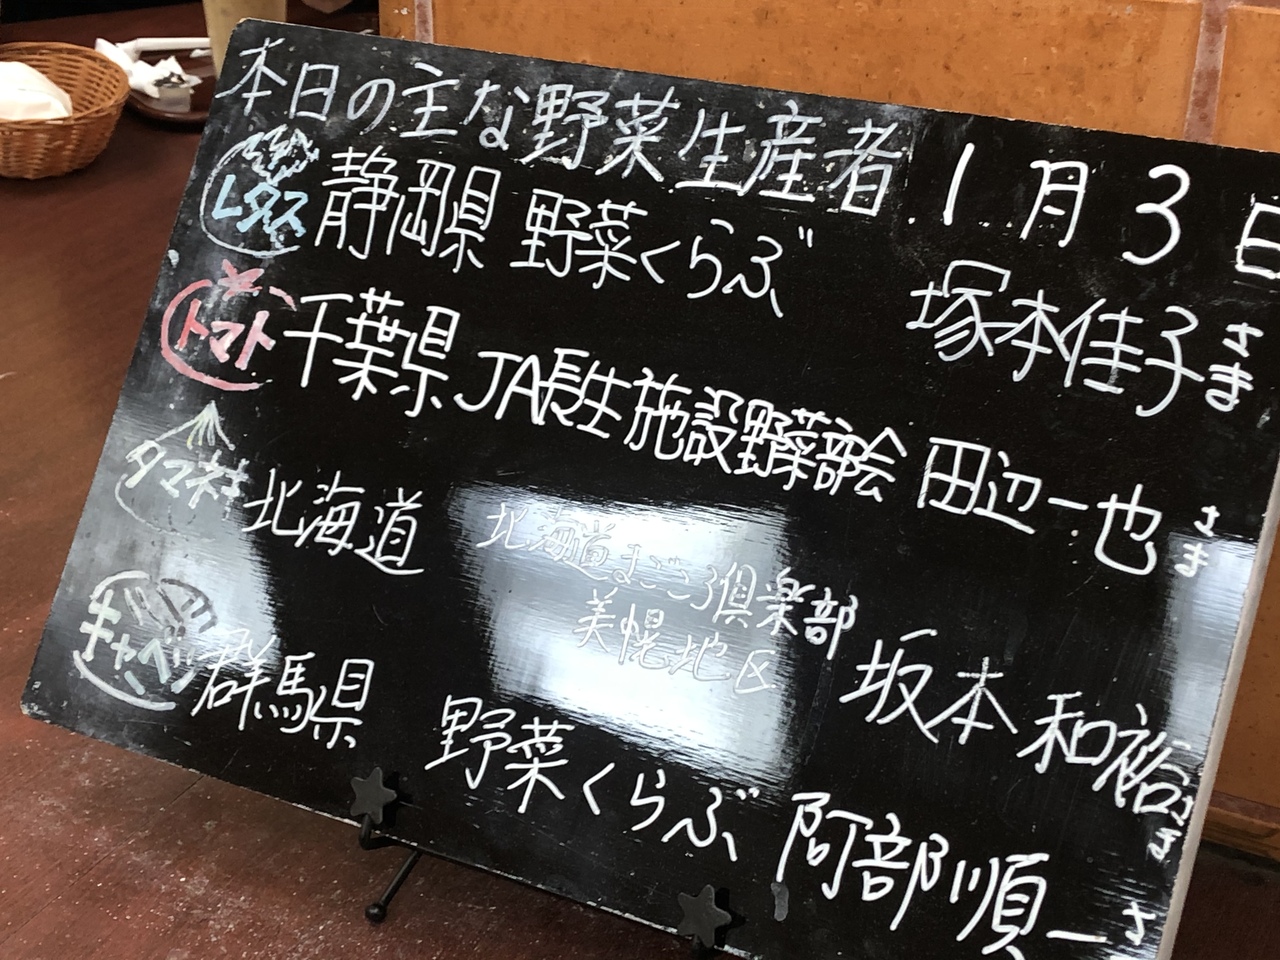 本日の主な野菜生産者 1月3日
レタス 静岡県 野菜くらぶ 塚本佳子さま
トマト 千葉県 JA長生施設野菜部会 田辺一也さま
タマネギ 北海道 北海道まごころ倶楽部 美幌地区 坂本和裕さま
キャベツ 群馬県 野菜くらぶ 阿部順一さま